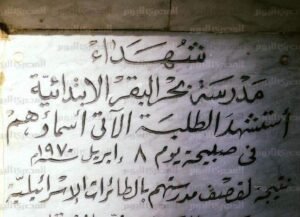 شهداء
مدرسة بحر البقر الابتدائية
أستشهد الطلبة الآتى أسماؤهم
فى صبيحة يوم ٨ ابريل ١٩٧٠
نتيجة لقصف مدرستهم بالطائرات الاسرائيلية